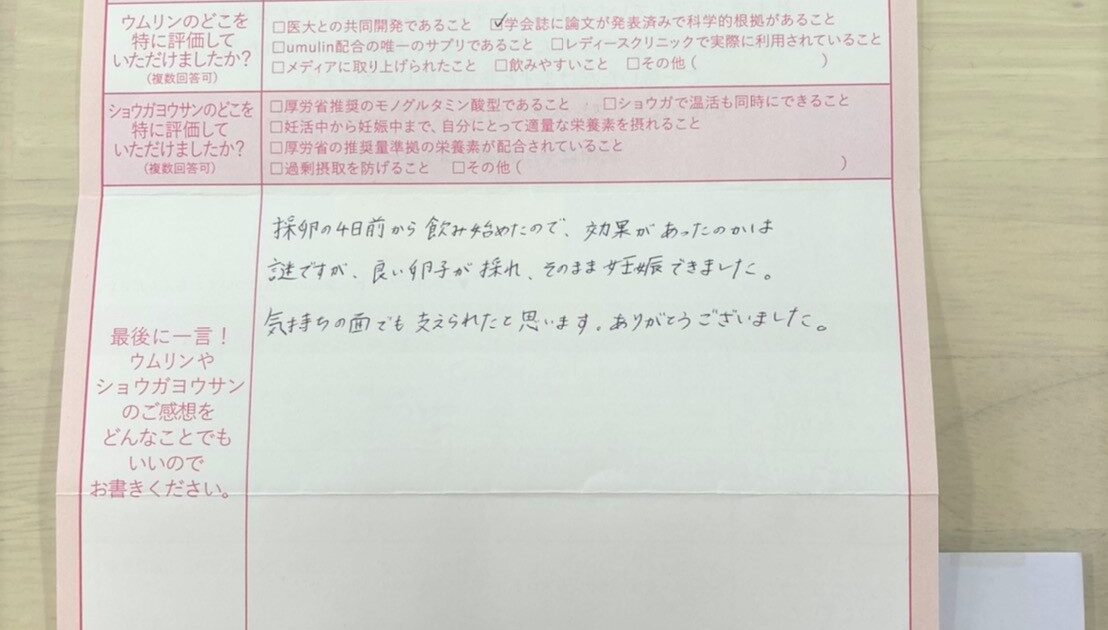 ウムリンのどこを
特に評価して
いただけましたか?
(複数回答可)
□医大との共同開発であること ☑学会誌に論文が発表済みで科学的根拠があること
□umulin配合の唯一のサプリであること □レディースクリニックで実際に利用されていること
□メディアに取り上げられたこと □飲みやすいこと □その他( )
ショウガヨウサンのどこを
特に評価して
いただけましたか?
(複数回答可)
□厚労省推奨のモノグルタミン酸型であること □ショウガで温活も同時にできること
□妊活中から妊娠中まで、自分にとって適量な栄養素を摂れること
□厚労省の推奨量準拠の栄養素が配合されていること
□過剰摂取を防げること □その他( )
最後に一言!
ウムリンや
ショウガヨウサン
のご感想を
どんなことでも
いいので
お書きください。
採卵の4日前から飲み始めたので、効果があったのかは
謎ですが、良い卵子が採れ、そのまま妊娠できました。
気持ちの面でも支えられたと思います。ありがとうございました。